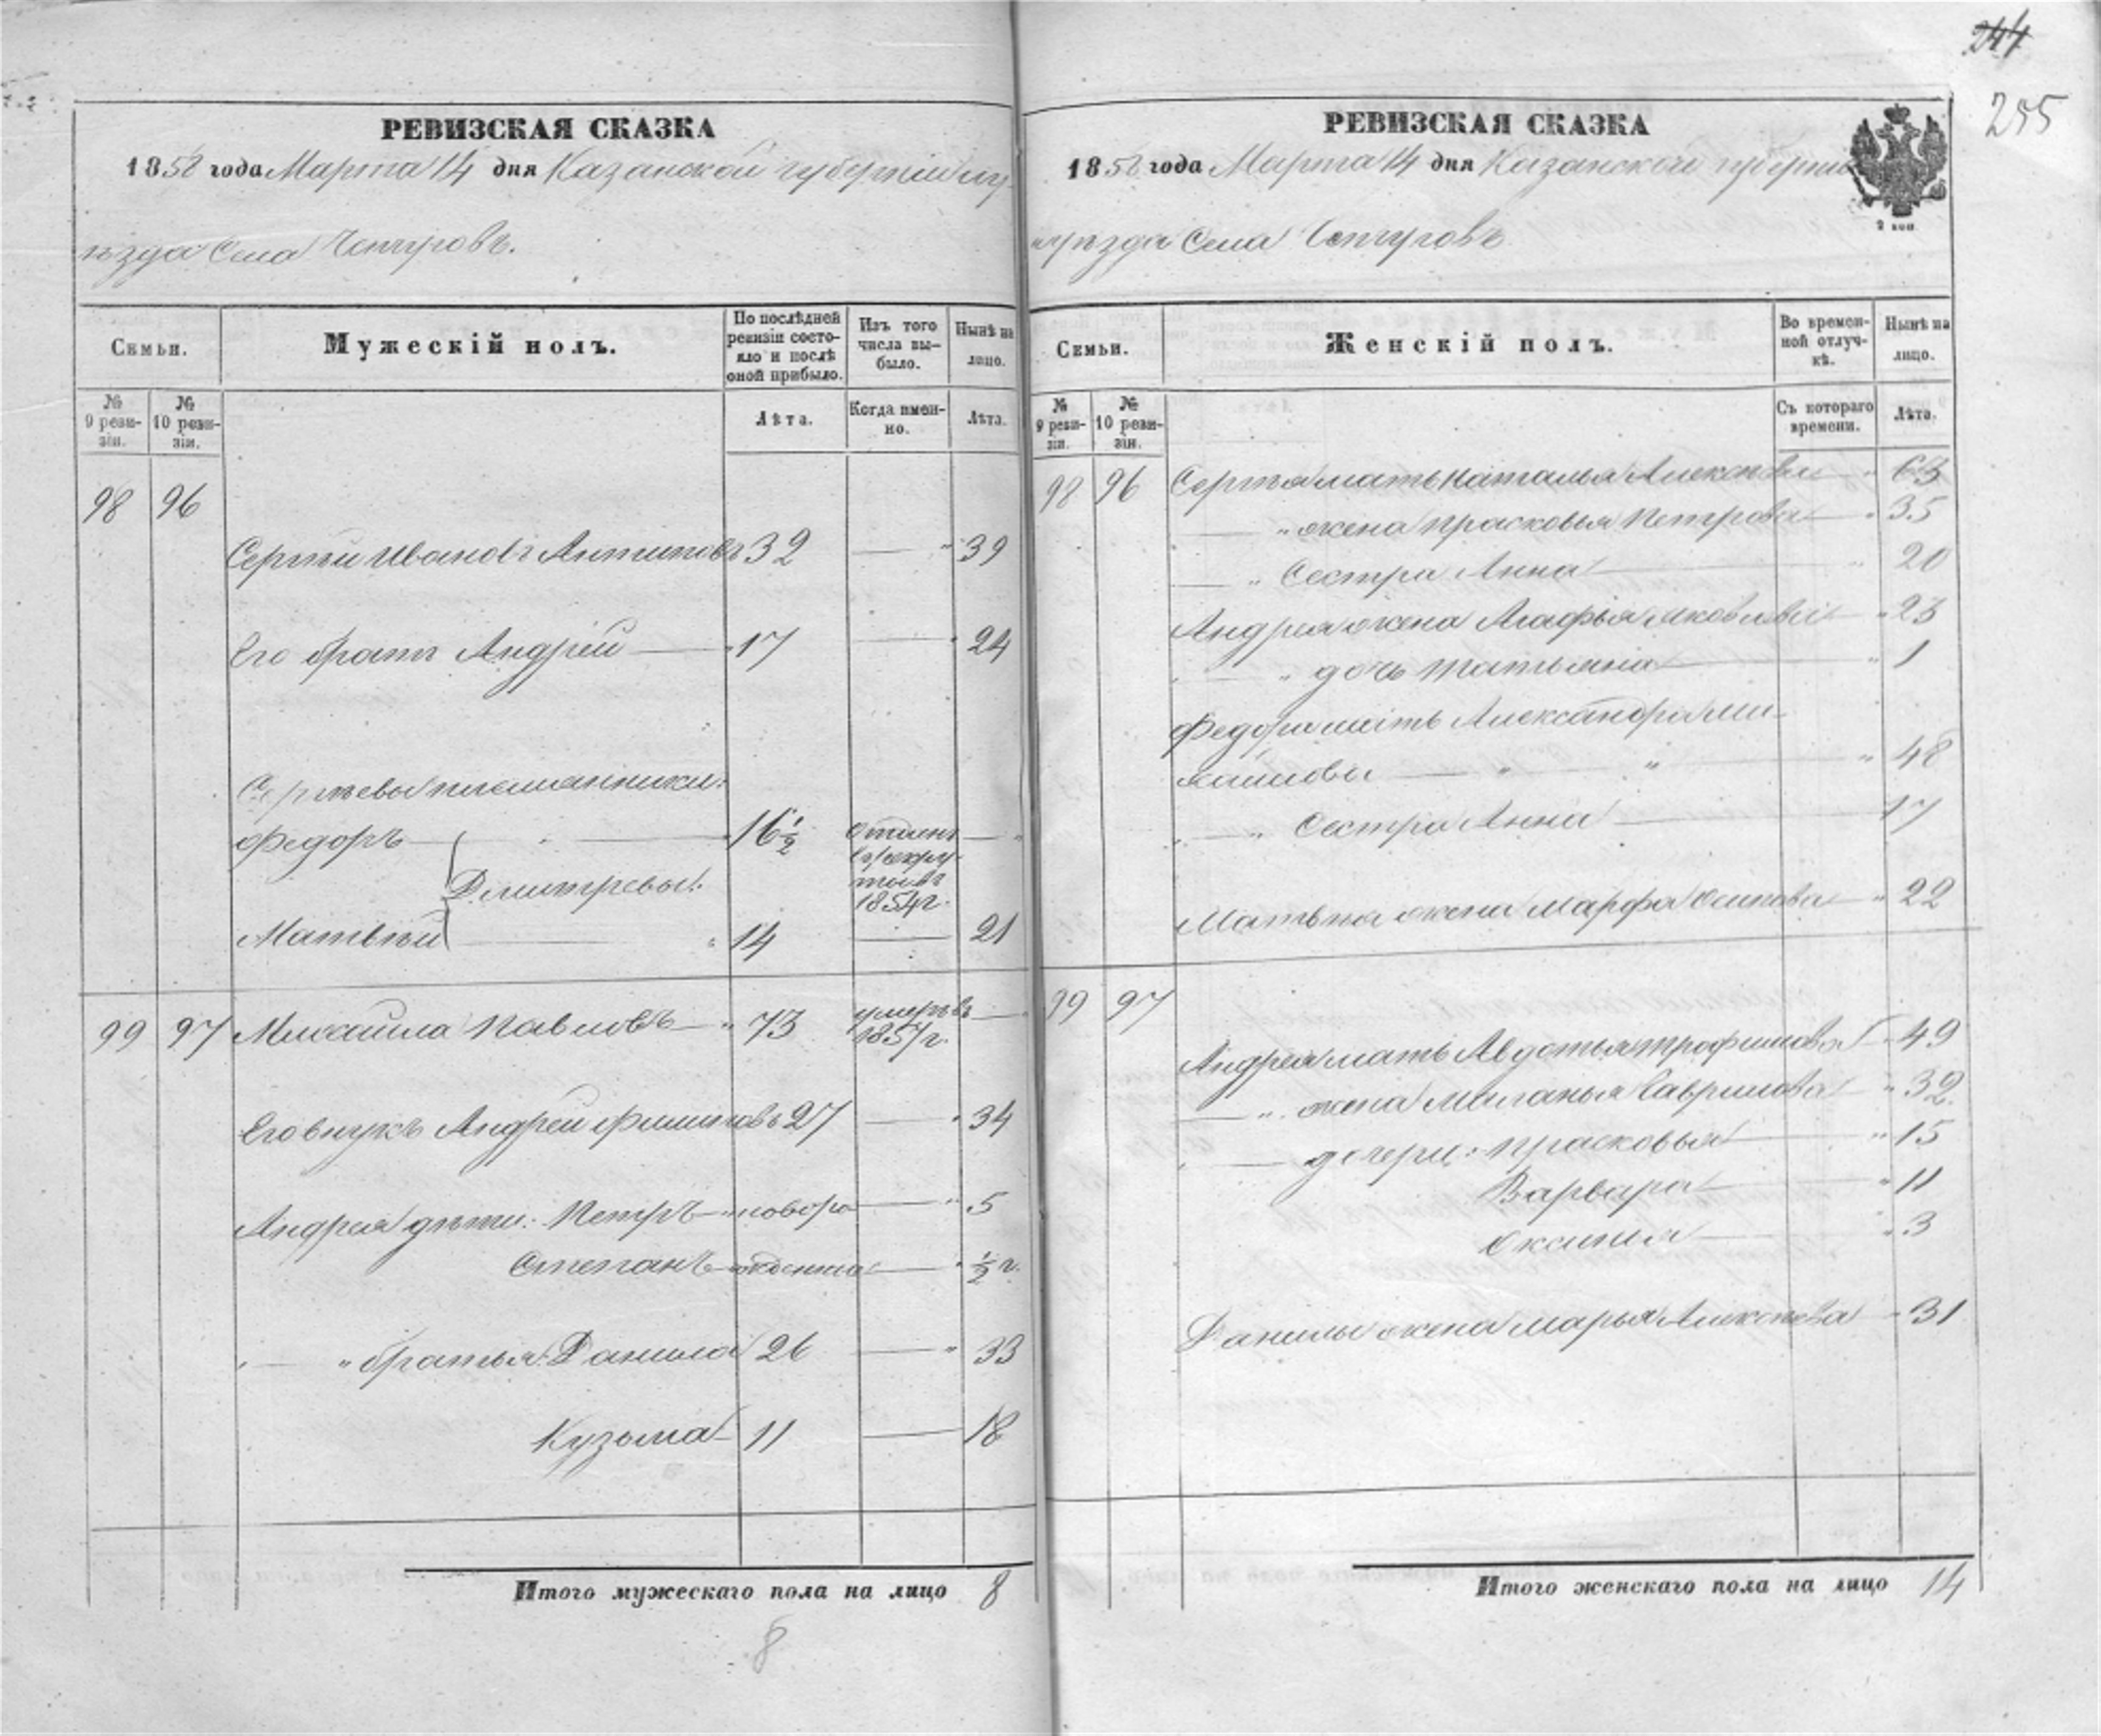 244
255
РЕВИЗСКАЯ СКАЗКА
1858 года Марта 14 дня Казанской губерніи
уѣзда Села Чепчуговъ.
Семьи.
Мужескій полъ.
По послѣдней ревизіи состояло и послѣ оной прибыло.
Изъ того числа выбыло.
Нынѣ на лицо.
№ 9 ревизіи.
№ 10 ревизіи.
Лѣта.
Когда именно.
Лѣта.
98 96
Сергѣй Ивановъ Антиповъ 32 — " 39
Его братъ Андрей — " 17 — " 24
Сергѣевы племянники:
Федоръ — " — 16 1/2 отданъ въ рекруты въ 1854 г. — "
Дмитревы.
Матвѣй — " 14 — 21
99 97 Михайла Павловъ — " 73 умеръ въ 1857 г. —
Его внукъ Андрей Филиповъ 27 — " 34
Андрея дѣти: Петръ — " новоро — " 5
Степанъ — жденные — " 1/2 г.
" — " братья: Данила 26 — " 33
Кузьма — 11 — 18
Итого мужескаго пола на лицо 8
8
РЕВИЗСКАЯ СКАЗКА
1858 года Марта 14 дня Казанской губерніи
уѣзда Села Чепчуговъ
2 коп.
Семьи.
Женскій полъ.
Во временной отлучкѣ.
Нынѣ на лицо.
№ 9 ревизіи.
№ 10 ревизіи.
Съ котораго времени.
Лѣта.
98 96 Сергѣя мать Наталья Алексѣева — " 63
" — " жена Прасковья Петрова — " 35
" — " Сестра Анна — " 20
Андрея жена Агафья Яковлева — " 23
" — " дочь Татьяна — " 1
Федора мать Александра Ми-
хайлова — " — " — " 48
" — " Сестра Анна — 17
Матвѣя жена Марфа Осипова — " 22
99 97
Андрея мать Авдотья Трофимова — 49
— " жена Миланья Гаврилова — " 32.
" — дочери: Прасковья — " 15
Варвара — " 11
Оксинья — " 3
Данилы жена Марья Алексѣева — 31
Итого женскаго пола на лицо 14